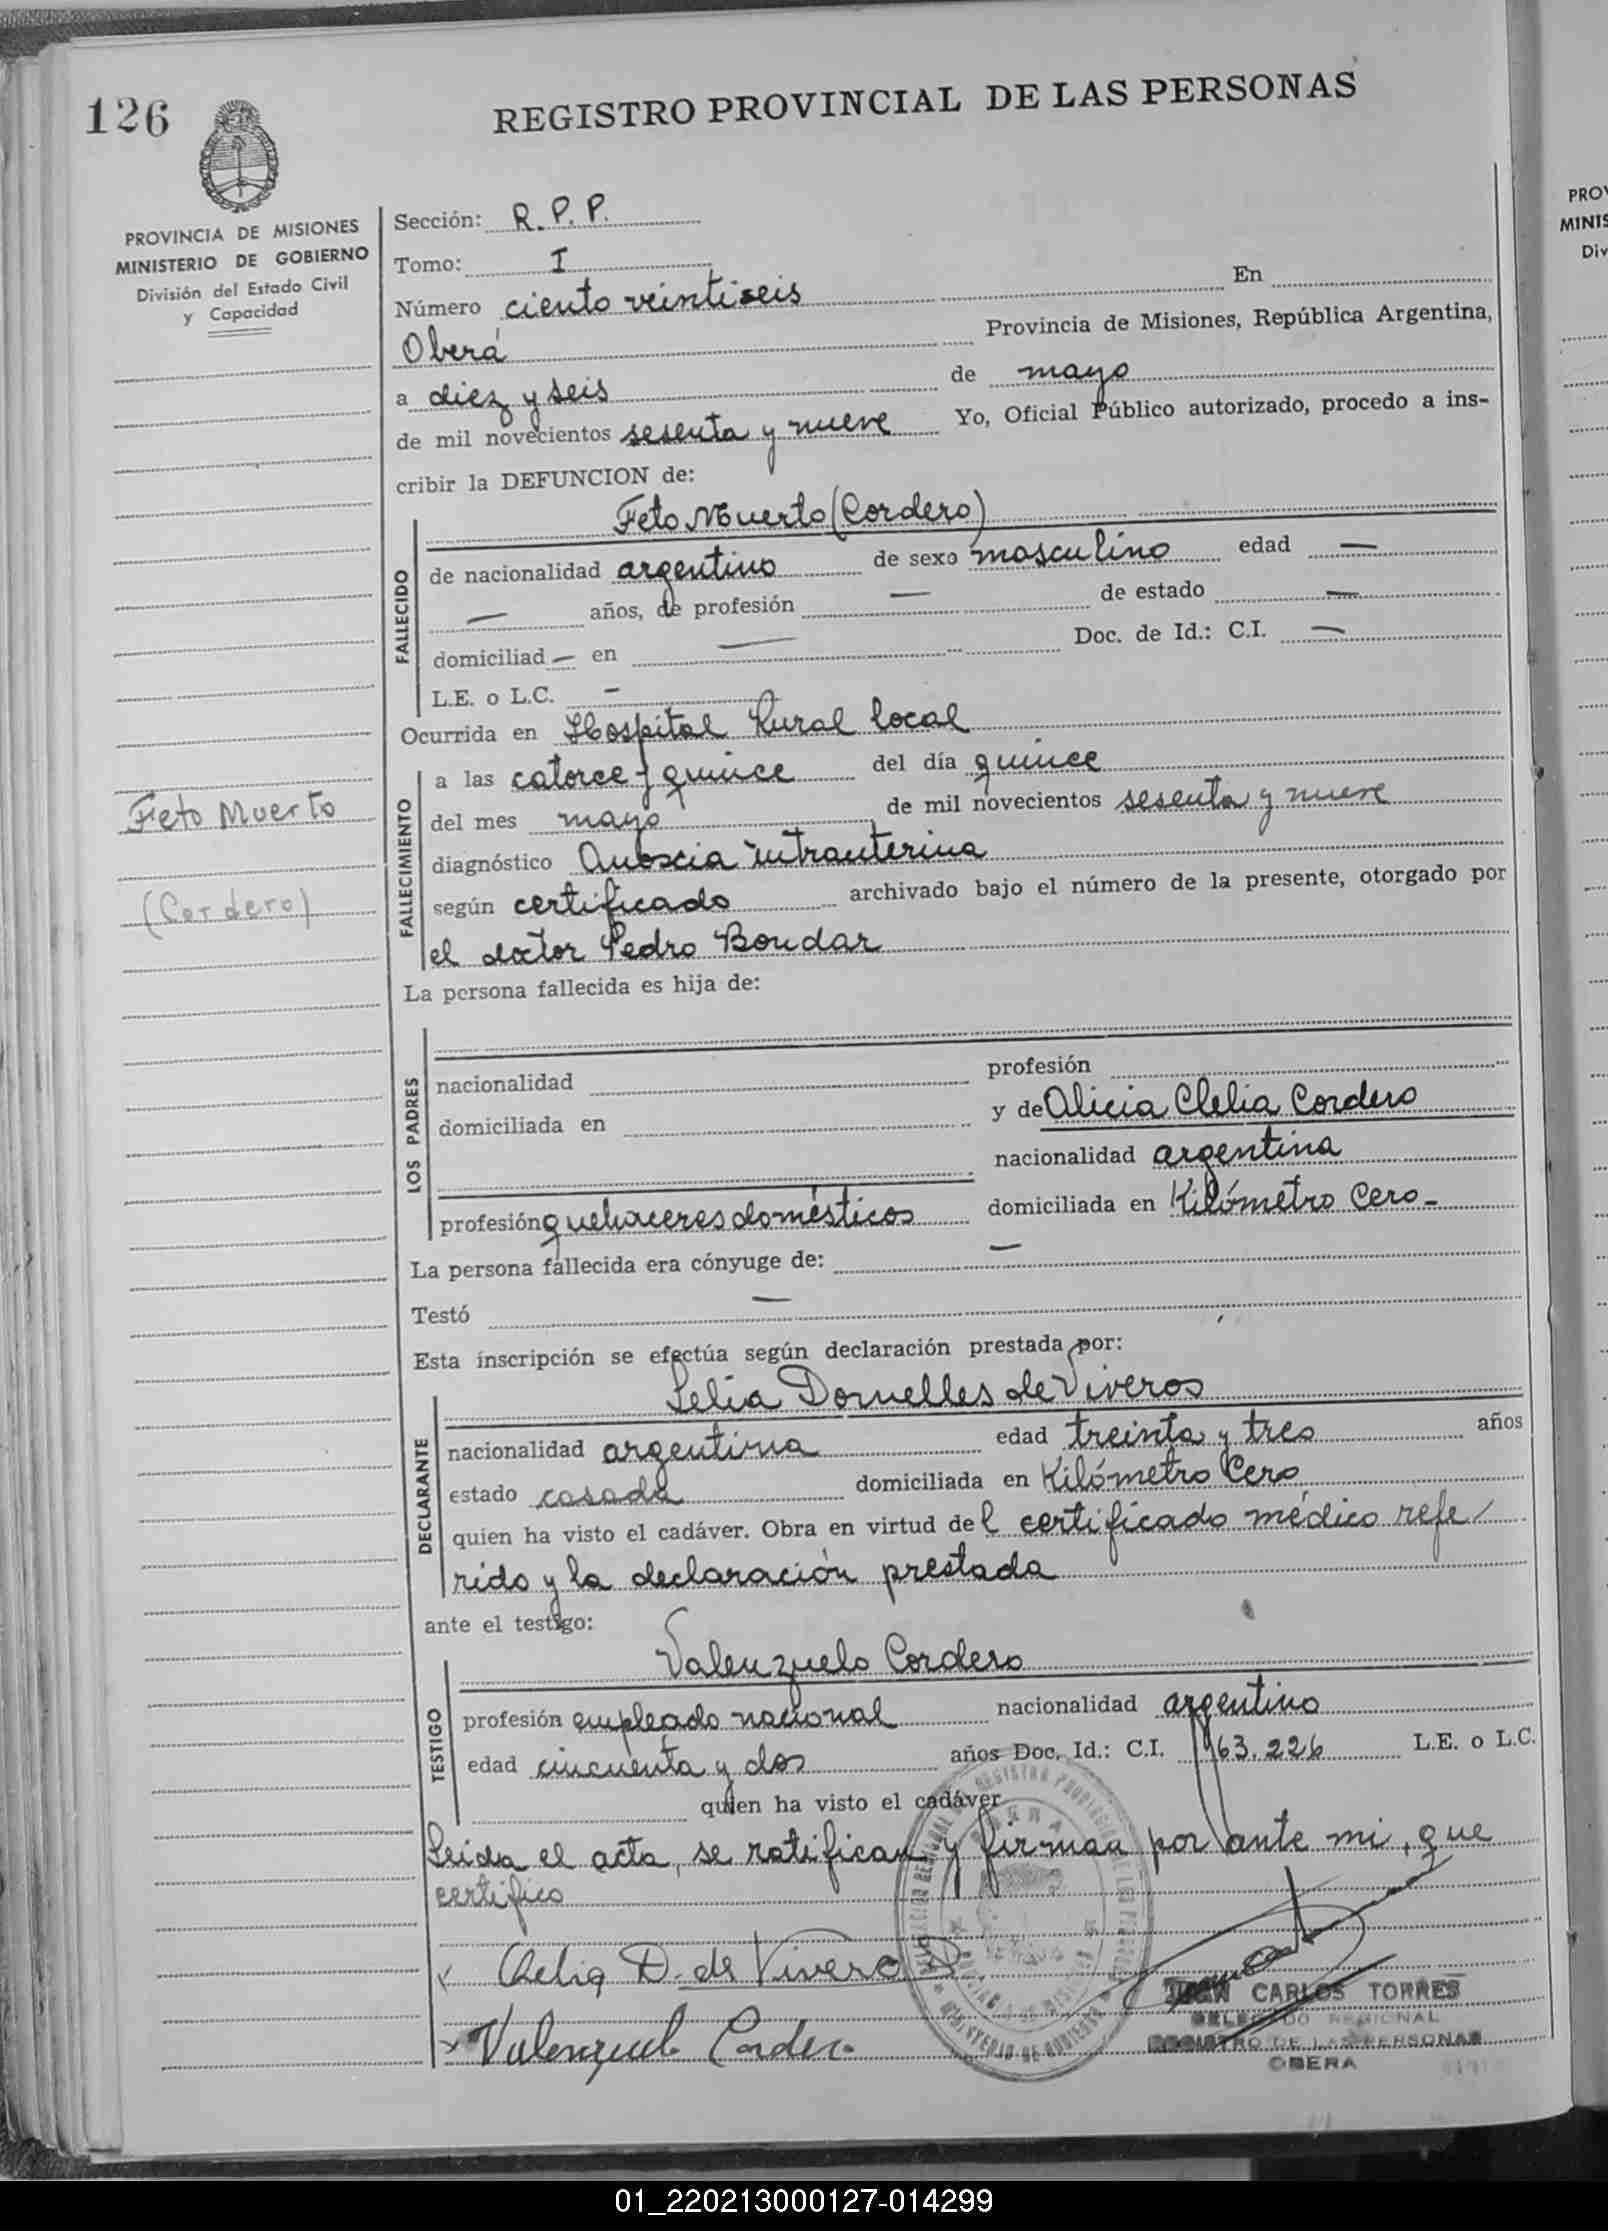 126
REGISTRO PROVINCIAL DE LAS PERSONAS
PROVINCIA DE MISIONES
MINISTERIO DE GOBIERNO
División del Estado Civil
y Capacidad
Sección: R.P.P.
Tomo: I
Número ciento veintiseis En
Oberá Provincia de Misiones, República Argentina,
a diez y seis de mayo
de mil novecientos sesenta y nueve Yo, Oficial Público autorizado, procedo a ins-
cribir la DEFUNCION de:
FALLECIDO
Feto Muerto (Cordero)
de nacionalidad argentino de sexo masculino edad —
— años, de profesión — de estado —
domiciliad — en — Doc. de Id.: C.I. —
L.E. o L.C. —
Ocurrida en Hospital Rural local
FALLECIMIENTO
a las catorce y quince del día quince
del mes mayo de mil novecientos sesenta y nueve
diagnóstico Anoxcia intrauterina
según certificado archivado bajo el número de la presente, otorgado por
el doctor Pedro Bondar
Feto Muerto
(Cordero)
La persona fallecida es hija de:
LOS PADRES
nacionalidad profesión
domiciliada en y de Alicia Clelia Cordero
nacionalidad argentina
profesión quehaceres domésticos domiciliada en Kilómetro Cero-
La persona fallecida era cónyuge de: —
Testó —
Esta inscripción se efectúa según declaración prestada por:
DECLARANTE
Lelia Dornelles de Viveros
nacionalidad argentina edad treinta y tres años
estado casada domiciliada en Kilómetro Cero
quien ha visto el cadáver. Obra en virtud del certificado médico refe/
rido y la declaración prestada
ante el testigo:
TESTIGO
Valenzuelo Cordero
profesión empleado nacional nacionalidad argentino
edad cincuenta y dos años Doc. Id.: C.I. 163.226 L.E. o L.C.
quien ha visto el cadáver
Leida el acta, se ratifican y firman por ante mi, que
certifico
D. de Viveros
Valenzuelo Cordero
JUAN CARLOS TORRES
DELEGADO REGIONAL
REGISTRO DE LAS PERSONAS
OBERA
PROV
MINIS
Div
01_220213000127-014299